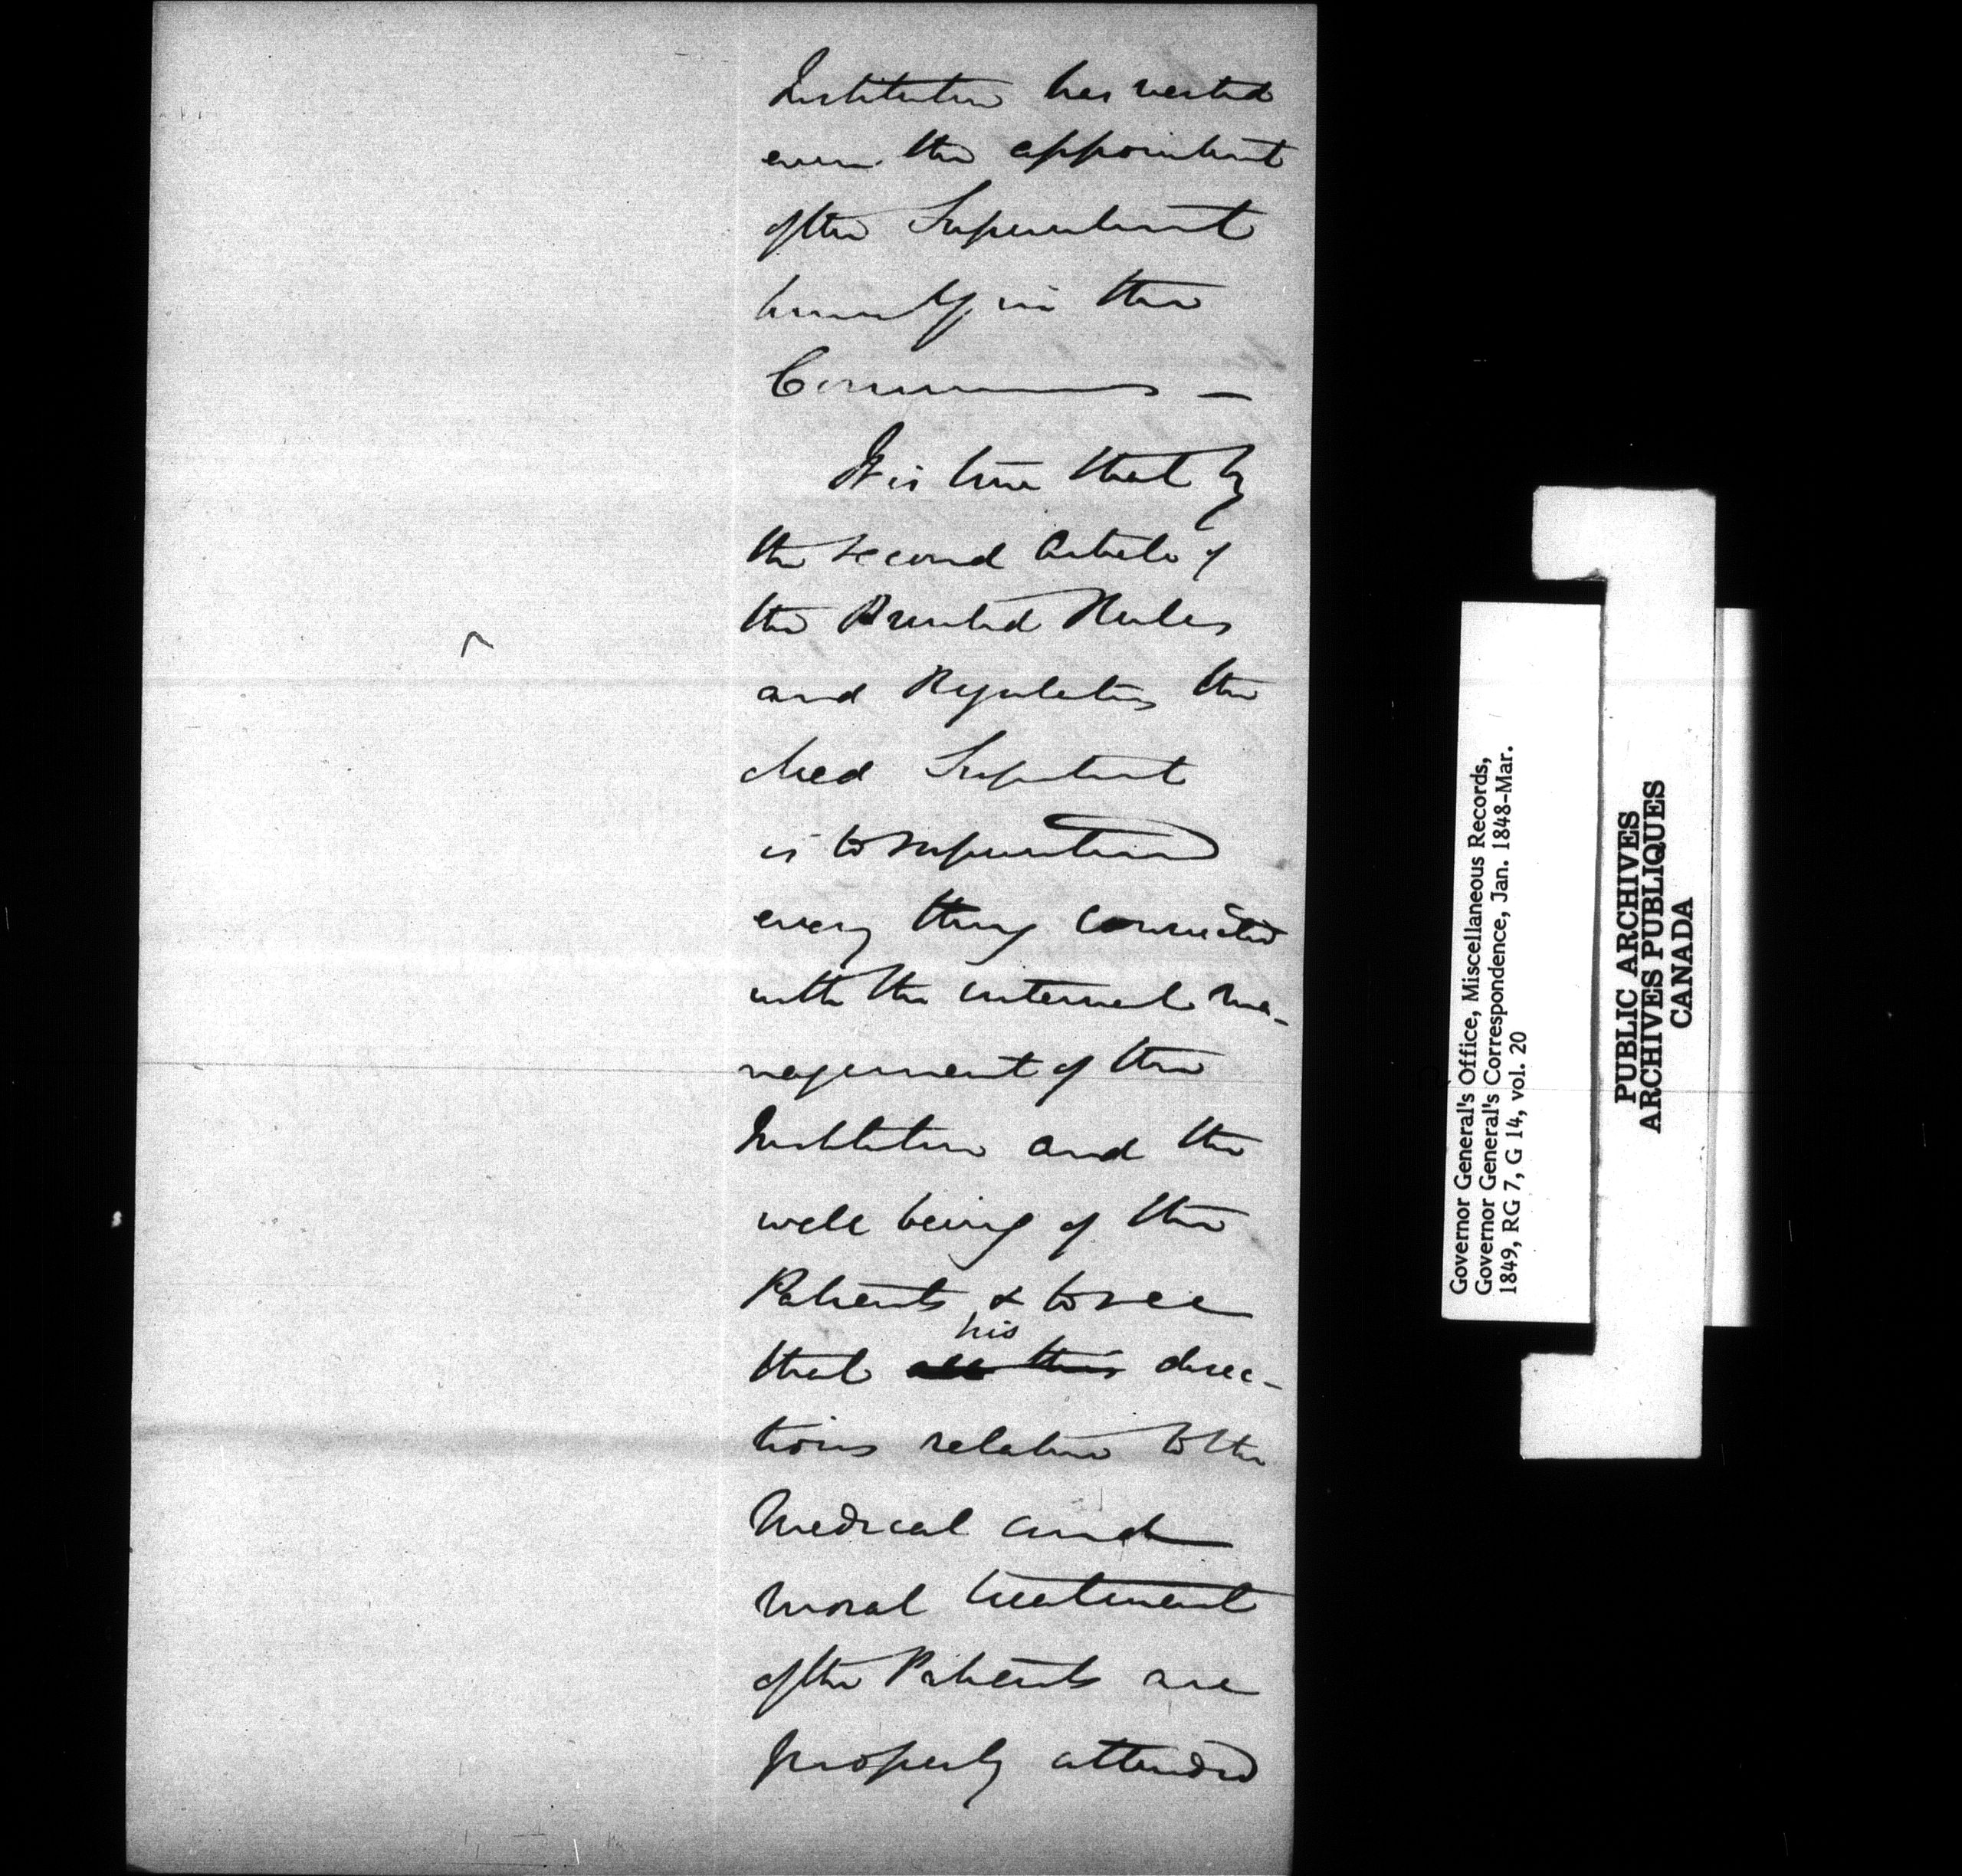 Institution has vested
even the appointment
of the Superintendent
himself, in the
Commissioners —
It is true that by
the second Article of
the Printed Rules
and Regulations the
Med Supertendent
is to superintend
every thing connected
with the internal ma-
nagement of the
Institution and the
well being of the
Patients & to see
his
that all this direc-
tions relative to the
Medical and
moral treatment
of the Patients are
properly attended
Governor General's Office, Miscellaneous Records,
Governor General's Correspondence, Jan. 1848-Mar.
1849, RG 7, G 14, vol. 20
PUBLIC ARCHIVES
ARCHIVES PUBLIQUES
CANADA